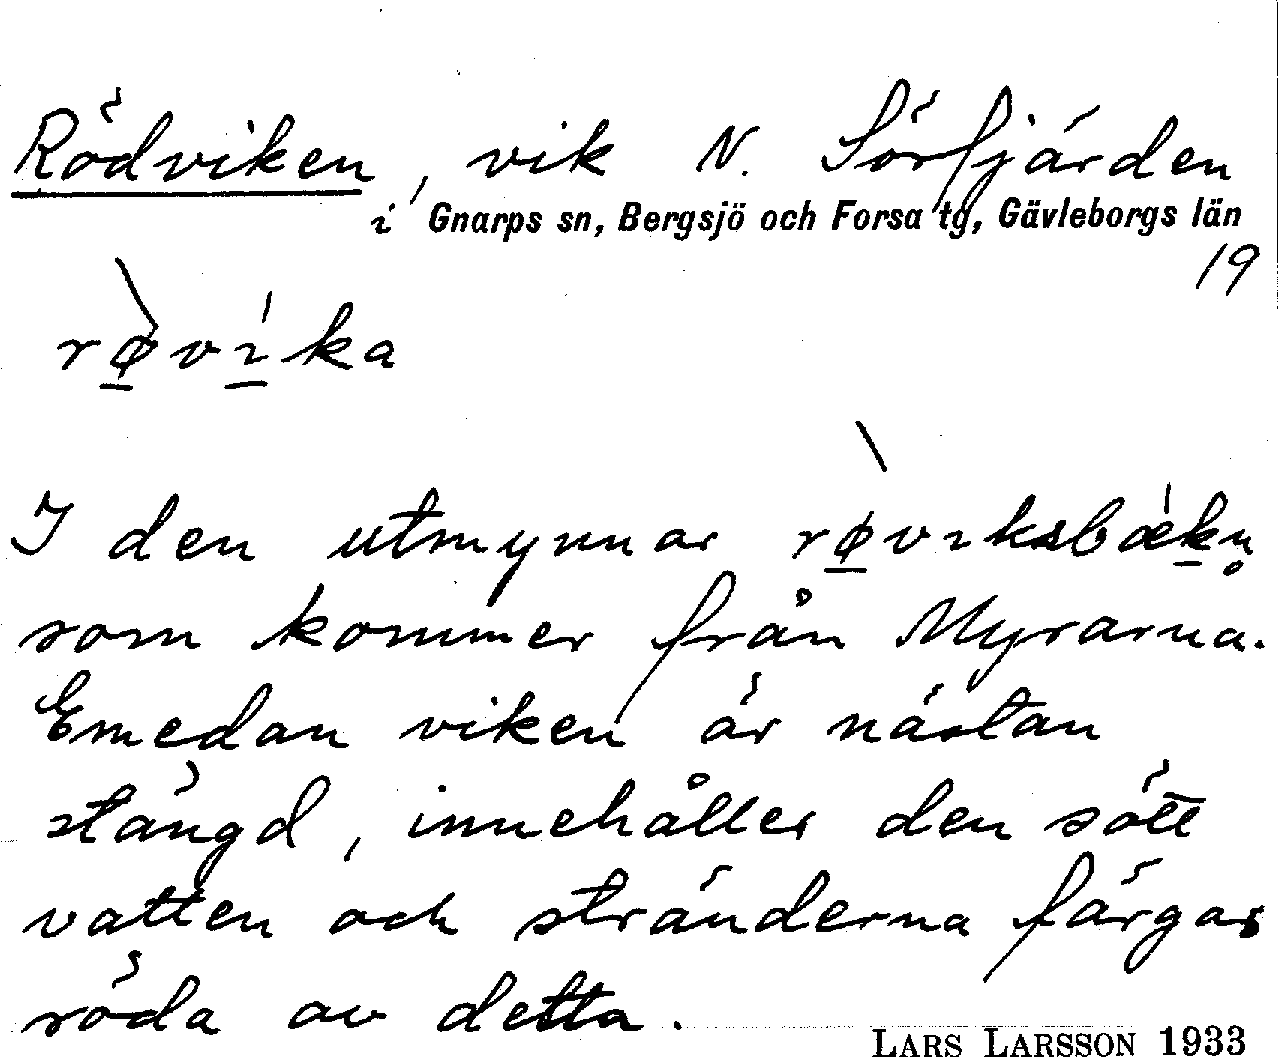 Rödviken, vik N. Sörfjärden
i Gnarps sn, Bergsjö och Forsa tg, Gävleborgs län
19
rø̲̀vı̲́ka
I den utmynnar rø̲̀vıksbǽk̲n̥
som kommer från Myrarna.
Emedan viken är nästan
stängd, innehåller den sött
vatten och stränderna färgas
röda av detta.
LARS LARSSON 1933